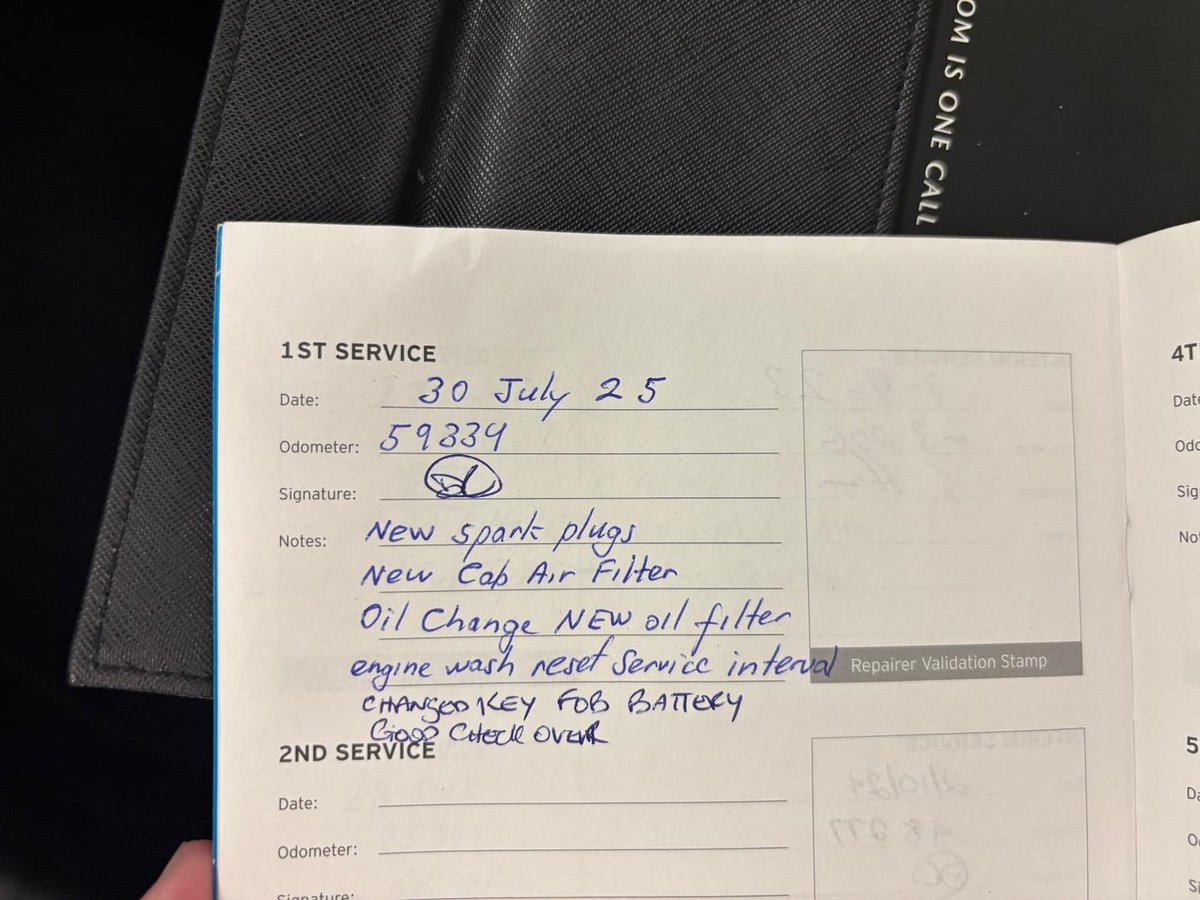 OM IS ONE CALL
1ST SERVICE
Date: 30 July 25
Odometer: 59334
Signature:
Notes: New spark plugs
New Cab Air Filter
Oil Change NEW oil filter
engine wash reset service interval
CHANGED KEY FOB BATTERY
Good Check OVER
Repairer Validation Stamp
2ND SERVICE
Date:
Odometer:
Signature:
4T
Date
Odo
Sig
No
5
Da
O
Si